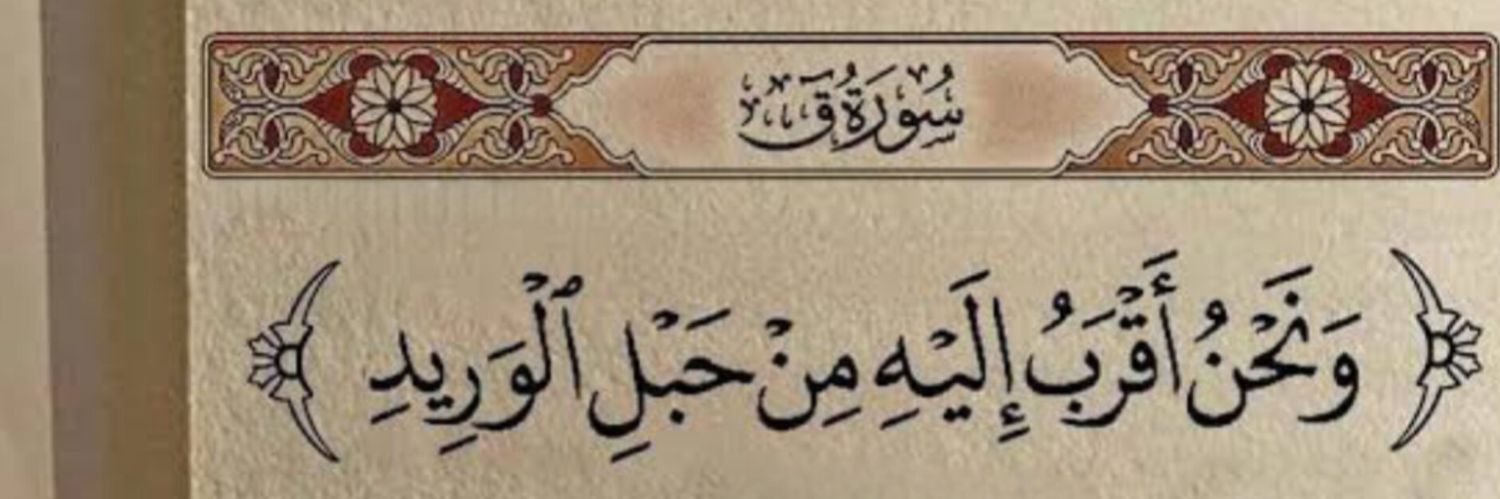 سُورَةُ قٓ
﴿وَنَحْنُ أَقْرَبُ إِلَيْهِ مِنْ حَبْلِ ٱلْوَرِيدِ﴾